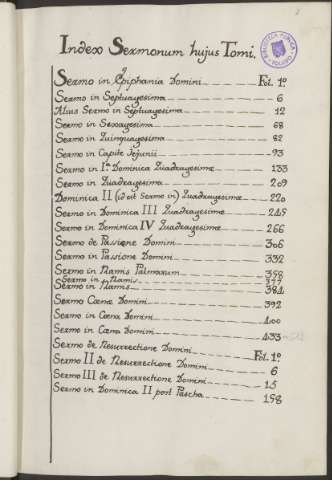 Index Sermonum hujus Tomi.
BIBLIOTECA PUBLICA
TOLEDO
Sermo in Epiphania Domini Fol. 1º
Sermo in Septuagesima 6
Alius Sermo in Septuagesima 12
Sermo in Sexagesima 68
Sermo in Quinquagesima 82
Sermo in Capite Jejunii 93
Sermo in Iª Dominica Quadragesime 133
Sermo in Quadragesima 209
Dominica II (id est Sermo in) Quadragesime 220
Sermo in Dominica III Quadragesime 245
Sermo in Dominica IV Quadragesime 266
Sermo de Passione Domini 306
Sermo in Passione Domini 332
Sermo in Ramis Palmarum 358
Sermo in Ramis 377
Sermo in Ramis 381
Sermo Cœnæ Domini 392
Sermo in Cœna Domini 400
Sermo in Cœna Domini 433
Sermo de Resurrectione Domini Fol. 1º
Sermo II de Resurrectione Domini 6
Sermo III de Resurrectione Domini 15
Sermo in Dominica II post Pascha 198